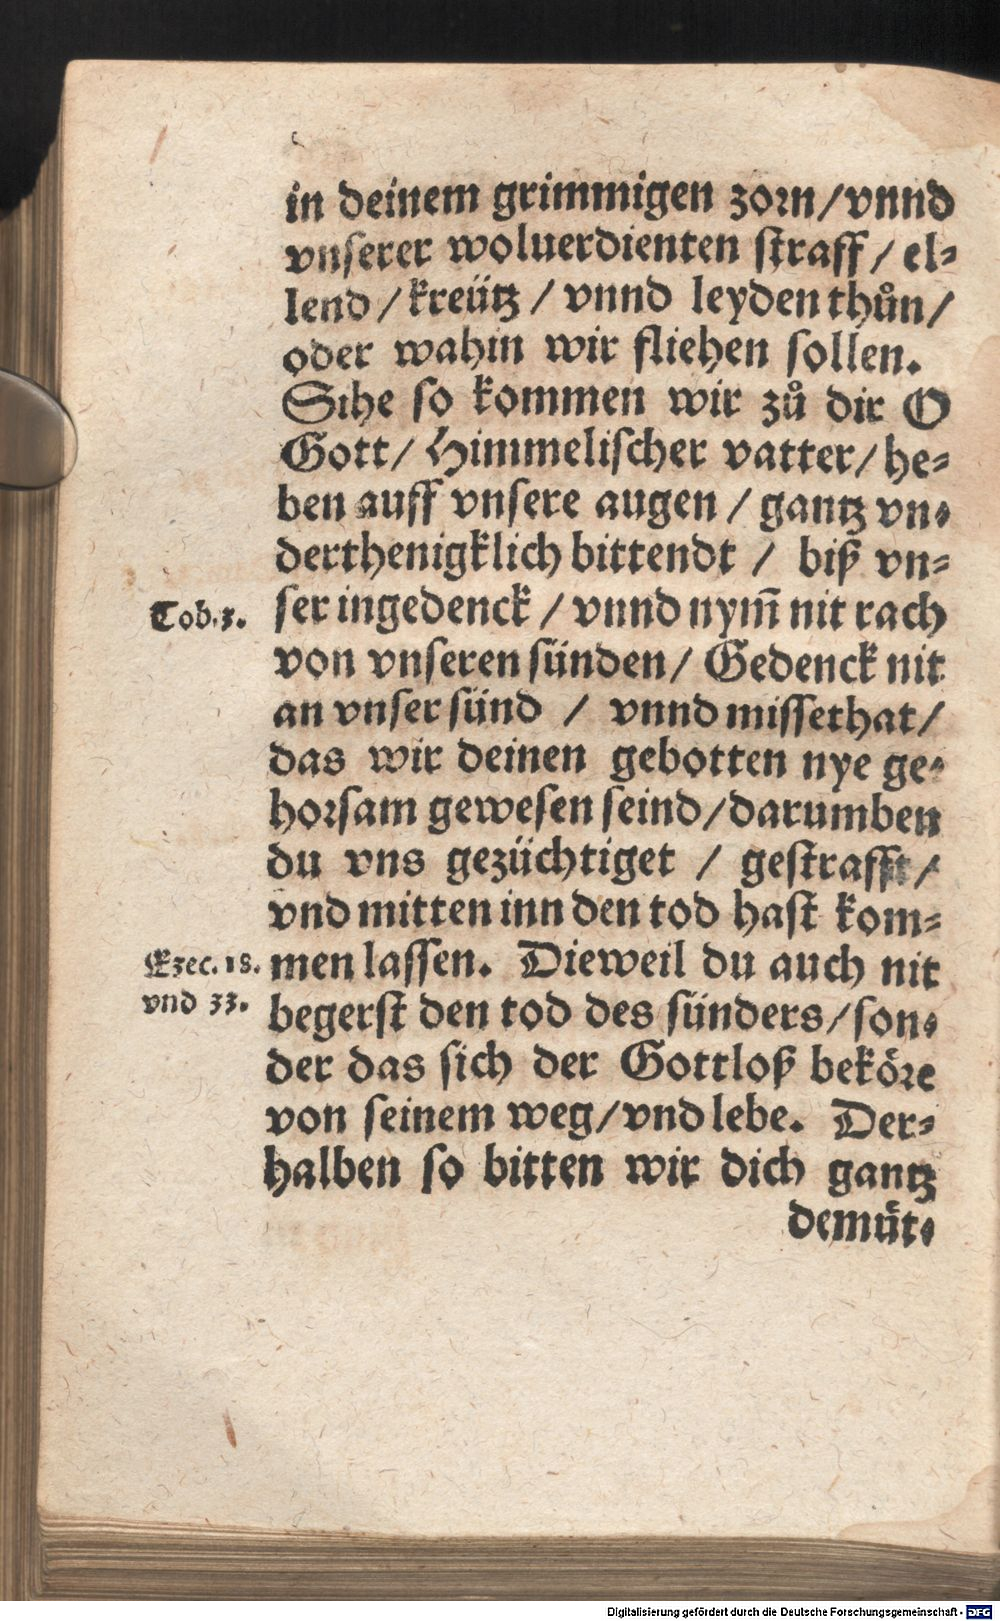 in deinem grimmigen zorn/vnnd
vnserer woluerdienten straff/ el-
lend/kreütz/ vnnd leyden thůn/
oder wahin wir fliehen sollen.
Sihe so kommen wir zů dir O
Gott/ Himmelischer vatter/ he-
ben auff vnsere augen/ gantz vn-
derthenigklich bittendt/ biß vn-
Tob.3. ser ingedenck/ vnnd nym̃ nit rach
von vnseren sünden/ Gedenck nit
an vnser sünd/ vnnd missethat/
das wir deinen gebotten nye ge-
horsam gewesen seind/darumben
du vns gezüchtiget/ gestrafft/
vnd mitten inn den tod hast kom-
Ezec. 18. men lassen. Dieweil du auch nit
vnd 33. begerst den tod des sünders/son-
der das sich der Gottloß beköre
von seinem weg/vnd lebe. Der-
halben so bitten wir dich gantz
demüt-
Digitalisierung gefördert durch die Deutsche Forschungsgemeinschaft - DFG